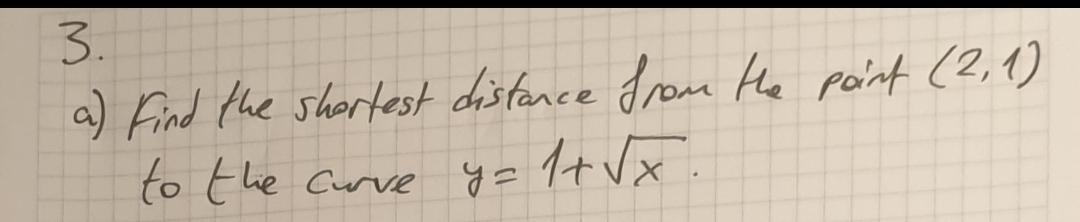 3.
a) Find the shortest distance from the point (2,1)
to the curve y = 1+√x.